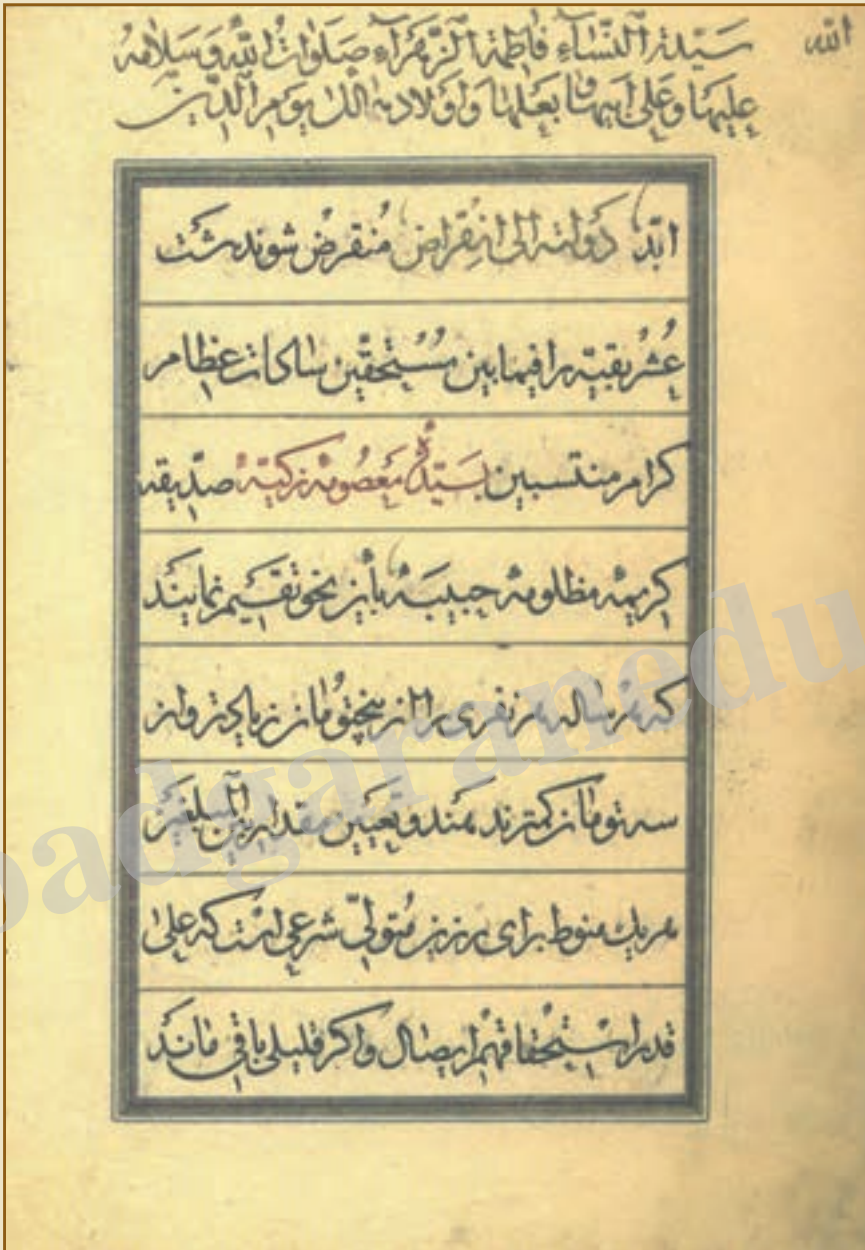 الله
سیّدة اَلنّسآءِ فٰاطمة اَلزّهرآءِ صَلَوٰاتُ اللّٰهِ وَسَلٰامُهُ
عَلَیهٰا وَعَلیٰ اَبیهٰا وَ بَعلِهٰا وَاَوْلادهٰا اِلیٰ یَومِ اَلدّین
ابّد دَولته الی انقراض منقرض شوند شش
عُشر بقیّه را فیمابین مُستحقّین سادات عظام
کرام منتسبین بسیّدهٔ معصومهٔ زکیّهٔ صدّیقه
کریمهٔ مظلومهٔ حبیبَهٔ باین نحو تقسیم نمایند
که هر ساله هر نفری را از پنجتومان زیادتر و از
سه تومان کمتر ندهند و تعیین مقدار بین المبلغین
هریک منوط برای رزین مُتولّی شرعی است که علی
قدر استحقاقهم ایصال و اکر قلیلی باقی ماند
padgaranedu